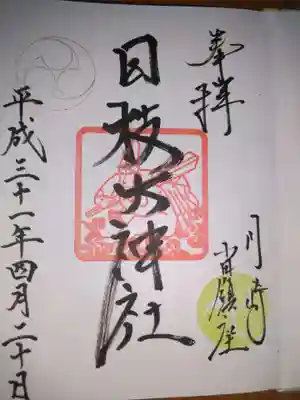 奉拝
川崎
小田鎮座
日枝大神社
平成三十一年四月二十日